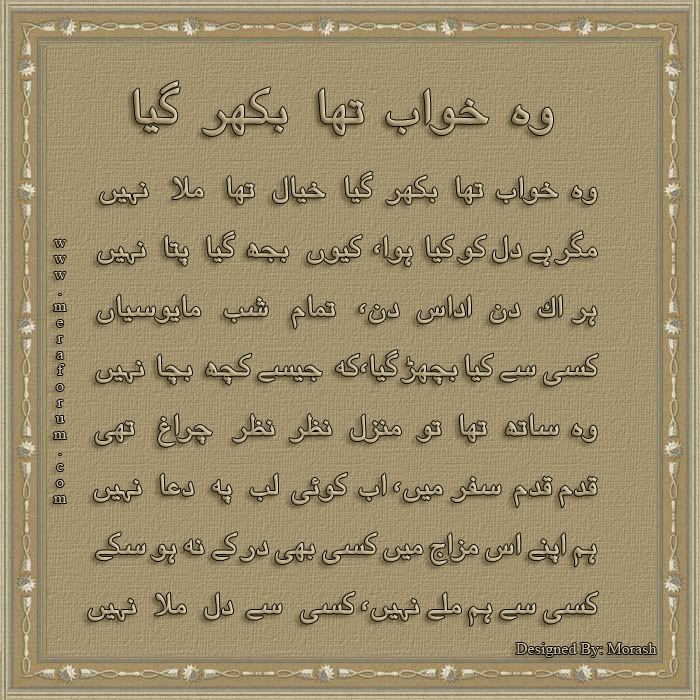 وہ خواب تھا بکھر گیا
وہ خواب تھا بکھر گیا خیال تھا ملا نہیں
مگر ہے دل کو کیا ہوا، کیوں بجھ گیا پتا نہیں
ہر اك دن اداس دن، تمام شب مایوسیاں
کسی سے کیا بچھڑ گیا،کہ جیسے کچھ بچا نہیں
وہ ساتھ تھا تو منزل نظر نظر چراغ تھی
قدم قدم سفر میں، اب کوئی لب پہ دعا نہیں
ہم اپنے اس مزاج میں کسی بھی در کے نہ ہو سکے
کسی سے ہم ملے نہیں، کسی سے دل ملا نہیں
www.meraforum.com
Designed By: Morash